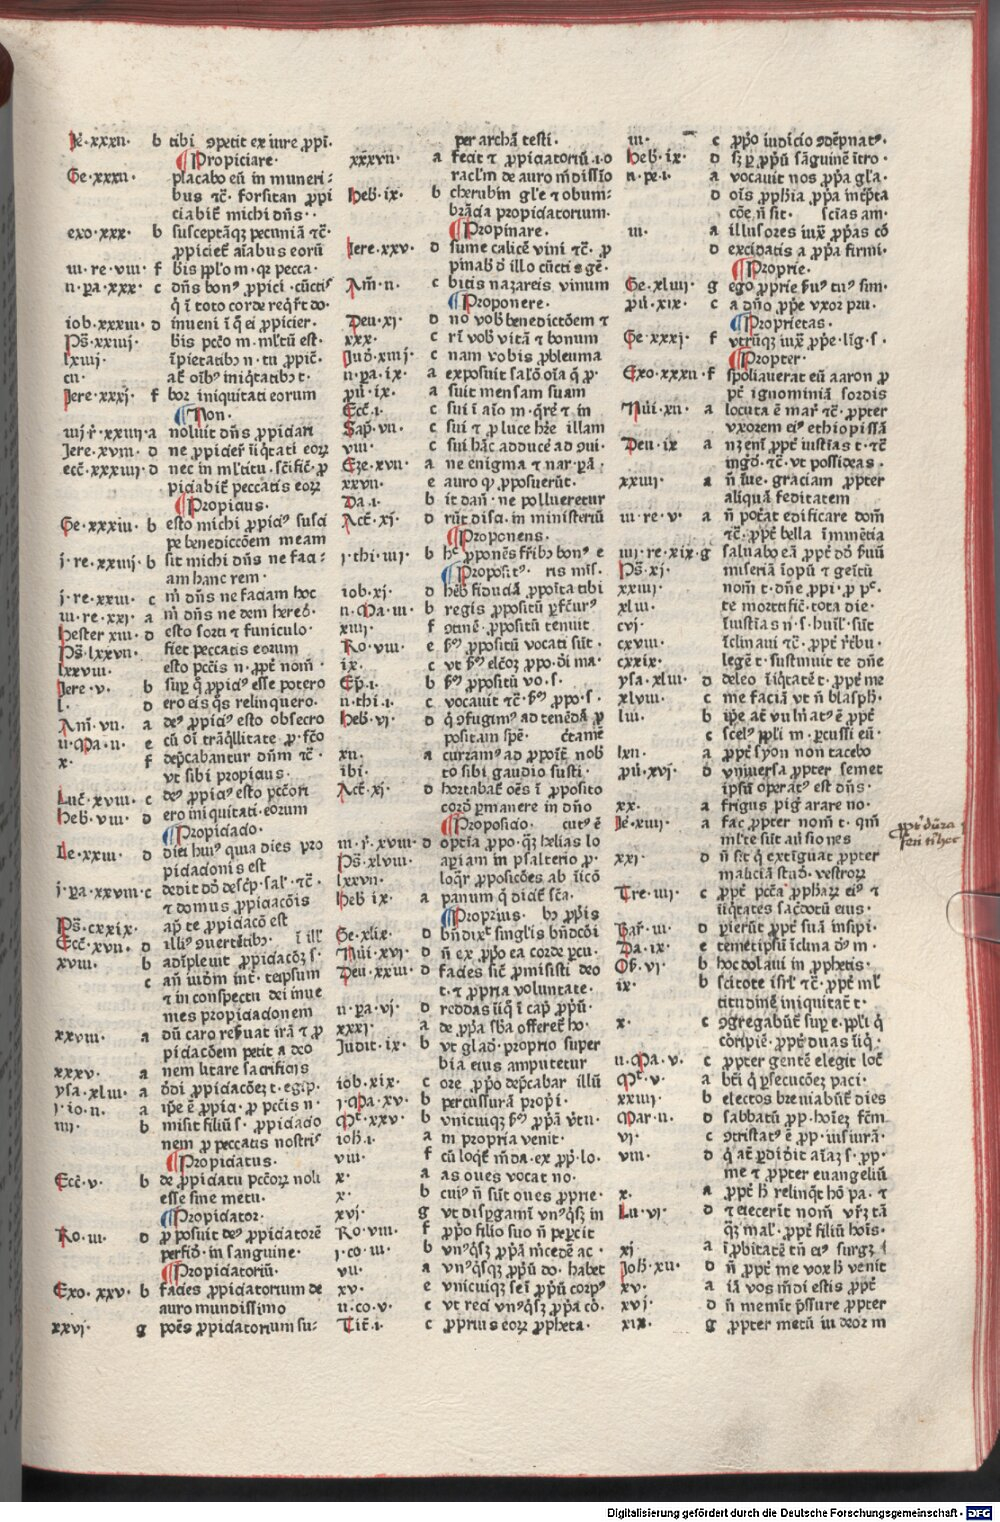 Je·xxxii· b tibi ꝯpetit ex iure ꝓpī·
Propiciare·
Ge·xxxii· placabo eū in muneri⸗
bus ⁊c̄· forsitan ꝓpi
ciabit̄ michi dn̄s··
exo·xxx· b susceptāqȝ pecuniā ⁊c̄·
ꝓpiciet̄ aīabus eorū
iii·re·viii· f bis pp̄lo m·qr pecca·
n·pa·xxx· c dn̄s bonꝰ ꝓpici·cūctis
q̄ ī toto corde req̄rt̄ do·
iob·xxxiii· d inueni ī q̄ ei ꝓpicier·
Ps̄·xxiiij· bis pctō m·ml̄tū est·
lxiiij· īpietatibꝰ n·tu ꝓpic̄·
cii·
Jere·xxxj· f bor iniquitati eorum
Non·
iiij r̄·xxiiij·a noluit dn̄s ꝓpiciari
Jere·xviii· d
ecc̄·xxxiiij d nec in ml̄titu·
piciabit̄ peccatis eoꝝ
Propicius·
Ge·xxxiii· b esto michi ꝓpiciꝰ susci
pe benediccōem meam
j·re·xxiiij· b sit michi dn̄s ne faci⸗
am hanc rem·
j·re·xxiii· c m̄ dn̄s ne faciam hoc
iii·re·xxj· a m̄ dn̄s ne dem hered̄·
Hester xiii· d esto sorti ⁊ funiculo·
Ps̄·lxxvii· fiet peccatis eorum
lxxviii· esto pctīs n·ꝓpt̄ nom̄·
Jere·v· b suꝑ q̄ ꝓpiciꝰ esse potero
l· d ero eis q̄s relinquero·
Am̄·vii· a deꝰ ꝓpiciꝰ esto obsecro
ii·Ma·ii· e cū oī trāq̄llitate ꝓ·fcō
x· f dep̄cabantur dn̄m ⁊c̄·
vt sibi propicius·
Luc̄·xviii· c deꝰ ꝓpiciꝰ esto pctōri
Heb̄·viii· d ero iniquitati·eorum
Propiciacio·
Le·xxiii· d diei huiꝰ quia dies pro
piciacionis est
j·pa·xxviii·c
⁊ domus ꝓpiciacōis
Ps̄·cxxix· ap̄ te ꝓpiciacō est
Ecc̄·xvii· d illiꝰ ꝯuertētibꝰ·
xviii· b adīpleuit ꝓpiciacōȝ s·
c an̄ iudm int̄·teipsum
⁊ in conspectu dei inue
nies propiciacionem
xxviii· a dū caro reẜuat irā ⁊ ꝓ
piciacōem petit a deo
xxxv· a nem litare sacrificijs
ysa·xliii· a ꝓpiciacōeȝ t·egip·
j·io·ii· a ip̄e ē ꝓpicia·ꝓ pctīs n·
iiii· b misit filiū s·ꝓpiciacio
nem ꝓ peccatis nostrꝭ
Propiciatus·
Ecc̄·v· b de ꝓpiciatu pctōꝝ noli
esse sine metu·
Propiciator·
Ro·iii· d ꝓposuit deꝰ ꝓpiciatorē
per fid̄·in sanguine·
Propiciatoriū·
Exo·xxv· b facies ꝓpiciatorium de
auro mundissimo
xxvj· g poēs ꝓpiciatorium su⸗
per archā testi·
xxxvii· a fecit ⁊ ꝓpiciatoriū·i·o
racl'm de auro mūdissio
Heb̄·ix· b cherubin gl̄e ⁊ obum⸗
brācia propiciatorium·
Propinare·
Jere·xxv· d sume calicē vini ⁊c̄·ꝓ
pinab̄ d̄ illo cūctis gē·
Am̄·ii· c bitis nazareis vinum
Proponere·
Deu·xj· d no vob̄ benedictōem ⁊
xxx· c ri vob̄ vitā ⁊ bonum
Jud̄·xiiij c nam vobis ꝓbleuma
n·pa·ix· a exposuit saloō oīa q̄ ꝓ·
ꝓū·ix· a suit mensam suam
Ecc̄·i· c sui ī aīo m·q̄rē ⁊ in
Sap̄·vii· c sui ⁊ ꝓ luce hr̄e illam
viii· c sui hāc adducē ad ꝯui·
Eze·xvii· a ne enigma ⁊ nar·pā·
xxvii· e auro q̄ ꝓposuerūt·
Da·i· b it dan̄·ne pollueretur
Act̄·xj· d rūt disci·in ministeriū
Proponens·
j·thi·iiij· b hͨ ꝓponēs fr̄ibꝰ bonꝰ e
Propositꝰ· ris mīs·
iob·xj· d heb̄ fiduciā ꝓposita tibi
ii·Ma·iii· b regis ꝓpositū ꝑfc̄urꝰ
xiiij· f ꝯtinē·ꝓpositū tenuit
Ro·viii· e ẜꝰ ꝓpositū vocati sūt·
ix· c vt ẜꝰ elc̄oȝ ꝓpo·dī ma·
Ep̄·i· b ẜꝰ ꝓpositū vo·s·
n·thi·i· c vocauit ⁊c̄·ẜꝰ ꝓpo·s·
Heb̄·vj· d q̄ ꝯfugimꝰ ad tenēdā ꝓ
positam spē· c̄tamē
xii· a curramꝰ ad ꝓpoīt̄ nob̄
ibi· to sibi gaudio susti·
Act̄·xj· d hortabat̄ oēs ī ꝓposito
cord̄ ꝑmanere in dn̄o
Proposicio· cutꝰ ē
iii·r̄·xviii d optīa ꝓpo·qȝ helias lo
Ps̄·xlviii· aꝑiam in psalterio ꝓ·
lxxvii· loq̄r ꝓposicōes ab īicō
Heb ix· a panum q̄ dicit̄ sc̄a·
Proprius· hꝰ ꝓpīs
Ge·xlix· d bn̄dixᵗ singlīs bn̄dcōī
Nūi·xvj· d n̄ ex ꝓpo ea corde ꝓcu·
Deu·xxiii d facies sic̄ ꝓmisisti deo
t·⁊ ꝓpria voluntate·
ii·pa·vj· d reddas iīq̄ ī cap̄ ꝓpū·
xxxj· a de ꝓpa sb̄a offeret̄ ho·
Judit·ix· b vt glad̄·proprio super
bia eius amputetur
iob·xix· c ore ꝓpō dep̄cabar illū
j·Ma·xv· b percussurā propī·
Mt̄·xxv· b vnicuiqȝ ẜꝰ ꝓpā v̄tu·
ioh̄·i· a in propria venit·
viii· f cū loqt̄ mēda·ex ꝓp̄·lo·
x· a as oues vocat no·
x· b cuiꝰ n̄ sūt oues ꝓprie·
xvj· g vt disꝑgamī vnꝰq̄sȝ in
Ro·viii· f ꝓpō filio suo n̄ peꝑcit
j·co·iii· b vnꝰq̄sȝ ꝓpā m̄cedē ac·
vii· a vnꝰq̄sqȝ ꝓpū do·habet
xv· e vnicuiqȝ seī ꝓpū corpꝰ
ii·co·v· c vt reci vnꝰq̄sȝ ꝓpā co·
Tit̄·i· c ꝓprius eoꝝ ꝓpheta·
iii· c ꝓpō iudicio ꝯdēpnatꝰ·
Heb̄·ix· d sȝ ꝑ ꝓpū sāguinē ītro·
n·pe·i· a vocauit nos ꝓpa gl̄a·
d oīs ꝓphīa ꝓpa intp̄ta
cōe n̄ sit· scīas am·
iii· a illusores iux̄ ꝓpas cō
d excidatis a ꝓpa firmi·
Proprie·
Ge·xliij· g ego ꝓprie ẜuꝰ tuꝰ sim·
ꝓū·xix· c a dn̄o ꝓpe vxor pru·
Proprietas·
Ge·xxxj· f vtrūqȝ iux̄ ꝓpe·līg·s·
Propter·
Exo·xxxii·f spoliauerat eū aaron ꝓ
pt̄ ignominiā sordis
Nūi·xii· a locuta ē mar̄ ⁊c̄·ꝓpter
vxorem eiꝰ ethiopissā
Deu·ix a nȝ enī ꝓpt̄ iustīas t·⁊c̄
ingd̄·⁊c̄·vt possideas·
xxiiij· a n̄ īue·graciam ꝓpter
aliquā feditatem
iii·re·v· a n̄ pot̄at edificare dom̄
⁊c̄·ꝓpt̄ bella īminētia
iiij·re·xix·g saluabo eā ꝓpt̄ dd̄ ẜuū
Ps̄·xj· miseriā īopū ⁊ geītū
xxiiij· nom̄ t·dn̄e ꝓpi·ꝑ pͨ·
xliii· te mortific̄·tota die·
cvj· īiustīas n·s·humil̄·sūt
cxviii· īclinaui ⁊c̄·ꝓpt̄ r̄tbu·
cxxix· legē t·sustinuit te dn̄e
ysa·xliii· d deleo īiq̄tatē t·ꝓpt̄ me
xlviii· c me faciā vt n̄ blasph̄·
liii· b ip̄e at̄ vuln̄atꝰ ē ꝓpt̄
c scelꝰ pp̄li m·ꝑcussi eū·
lxii· a ꝓpt̄ syon non tacebo
ꝓū·xvj· d vniuersa ꝓpter semet
ipsū operatꝰ est dn̄s·
xx· a frigus piḡ arare no·
Je·xiiij· a fac ꝓpter nom̄ t·qm̄
ml̄te sūt aūsiones
xxj· d n̄ sit q̄ extīguat ꝓpter
maliciā stud̄·vestroꝝ
Tre·iiij· c ꝓpt̄ pctā ꝓphaꝝ eiꝰ ⁊
iīq̄tates sac̄dotū eius·
Bar̄·iii· d ꝑierūt ꝓpt̄ suā insipi·
Da·ix· e temetipsū īclina dꝰ m·
Os̄·vj· b hoc dolaui in ꝓphetis·
ix· b scitote isrl̄ ⁊c̄·ꝓpt̄ ml̄
titudinē iniquitat̄ t·
x· c ꝯgregabūt̄ suꝑ e·pp̄li q̄
corripiē·ꝓpt̄ duas iīq̄·
ii·Ma·v· c ꝓpter gentē elegit loc̄
Mt̄·v· a bt̄i q̄ ꝑsecucōeȝ paci·
xxiiij· b electos breuiabūt̄ dies
Mar·ii· d sabbatū ꝓp·hoīeȝ fc̄m·
vj· c ꝯtristatꝰ ē ꝓp·iusiurā·
viii· d q̄ at̄ ꝑdidīt aīaȝ s·ꝓp·
me ⁊ ꝓpter euangeliū
x· a ꝓpt̄ ħ relinq̄t hō pa·⁊
Lu·vj· d ⁊ eiecerīt nom̄ vr̄ȝ tā
q̄ȝ mal̄·ꝓpt̄ filiū hoīs·
xj a īꝓbitatē tn̄ eiꝰ surgȝ
Joh̄·xii· d n̄ ꝓpt̄ me vox ħ venit
xv· a iā vos mūdi estis ꝓpt̄
xvj· d n̄ meminīt p̄ssure ꝓpter
xix· g ꝓpter metū iudeoꝝ m
Digitalisierung gefördert durch die Deutsche Forschungsgemeinschaft - DFG